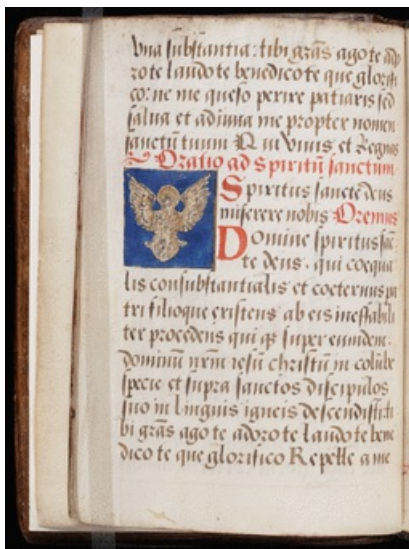 vna substantia: tibi gr̃as ago te ado
ro te laudo te benedico te que glorifi
co: ne me queso perire patiaris sed
salua et adiuua me propter nomen
sanctũ tuum Qui viuis et Regnas
Oratio ad spiritũ sanctum
Spiritus sancte deus
miserere nobis Oremus
Domine spiritus sãc
te deus. qui coequa
lis consubstantialis et coeternus pa
tri filioque existens ab eis ineffabili
ter procedens qui super eundem
dominũ nr̃m iesũ christũ in colũbe
specie et supra sanctos discipulos
suo in linguis igneis descendisti: ti
bi gr̃as ago te adoro te laudo te bene
dico te que glorifico Repelle a me